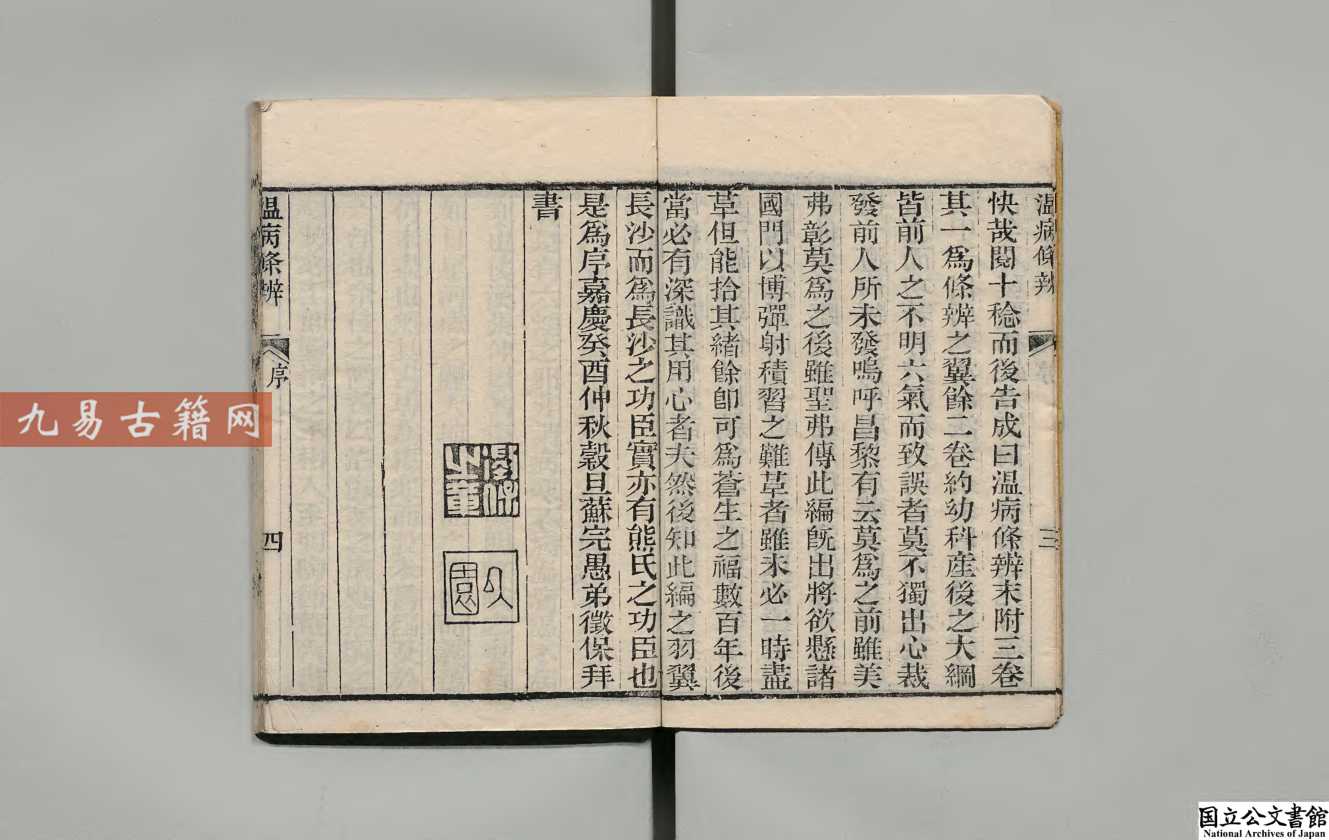 温病條辨
三
快哉閱十稔而後告成曰温病條辨末附三卷
其一爲條辨之翼餘二卷約幼科産後之大綱
皆前人之不明六氣而致誤者莫不獨出心裁
發前人所未發嗚呼昌黎有云莫爲之前雖美
弗彰莫爲之後雖聖弗傳此編旣出將欲懸諸
國門以博彈射積習之難革者雖未必一時盡
革但能拾其緒餘卽可爲蒼生之福數百年後
當必有深識其用心者夫然後知此編之羽翼
長沙而爲長沙之功臣實亦有熊氏之功臣也
是爲序嘉慶癸酉仲秋穀旦蘇完愚弟徵保拜
書
温病條辨
序
四
九易古籍网
国立公文書館
National Archives of Japan